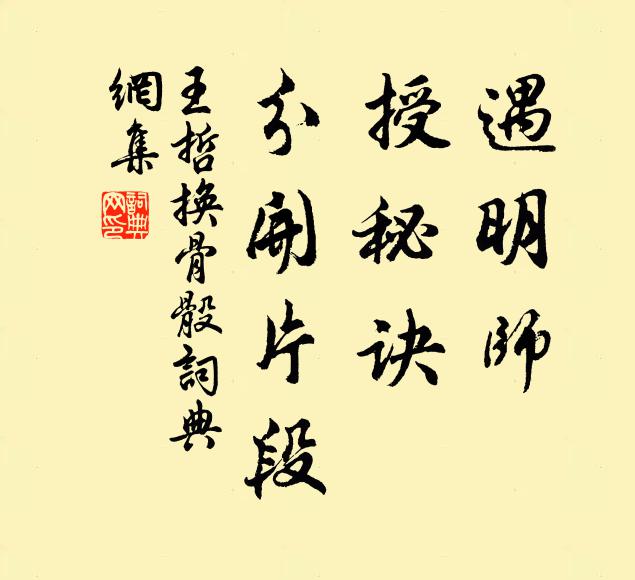 遇明师
授秘诀
分開片段
王哲換骨骰詞典
網集
詞典網印